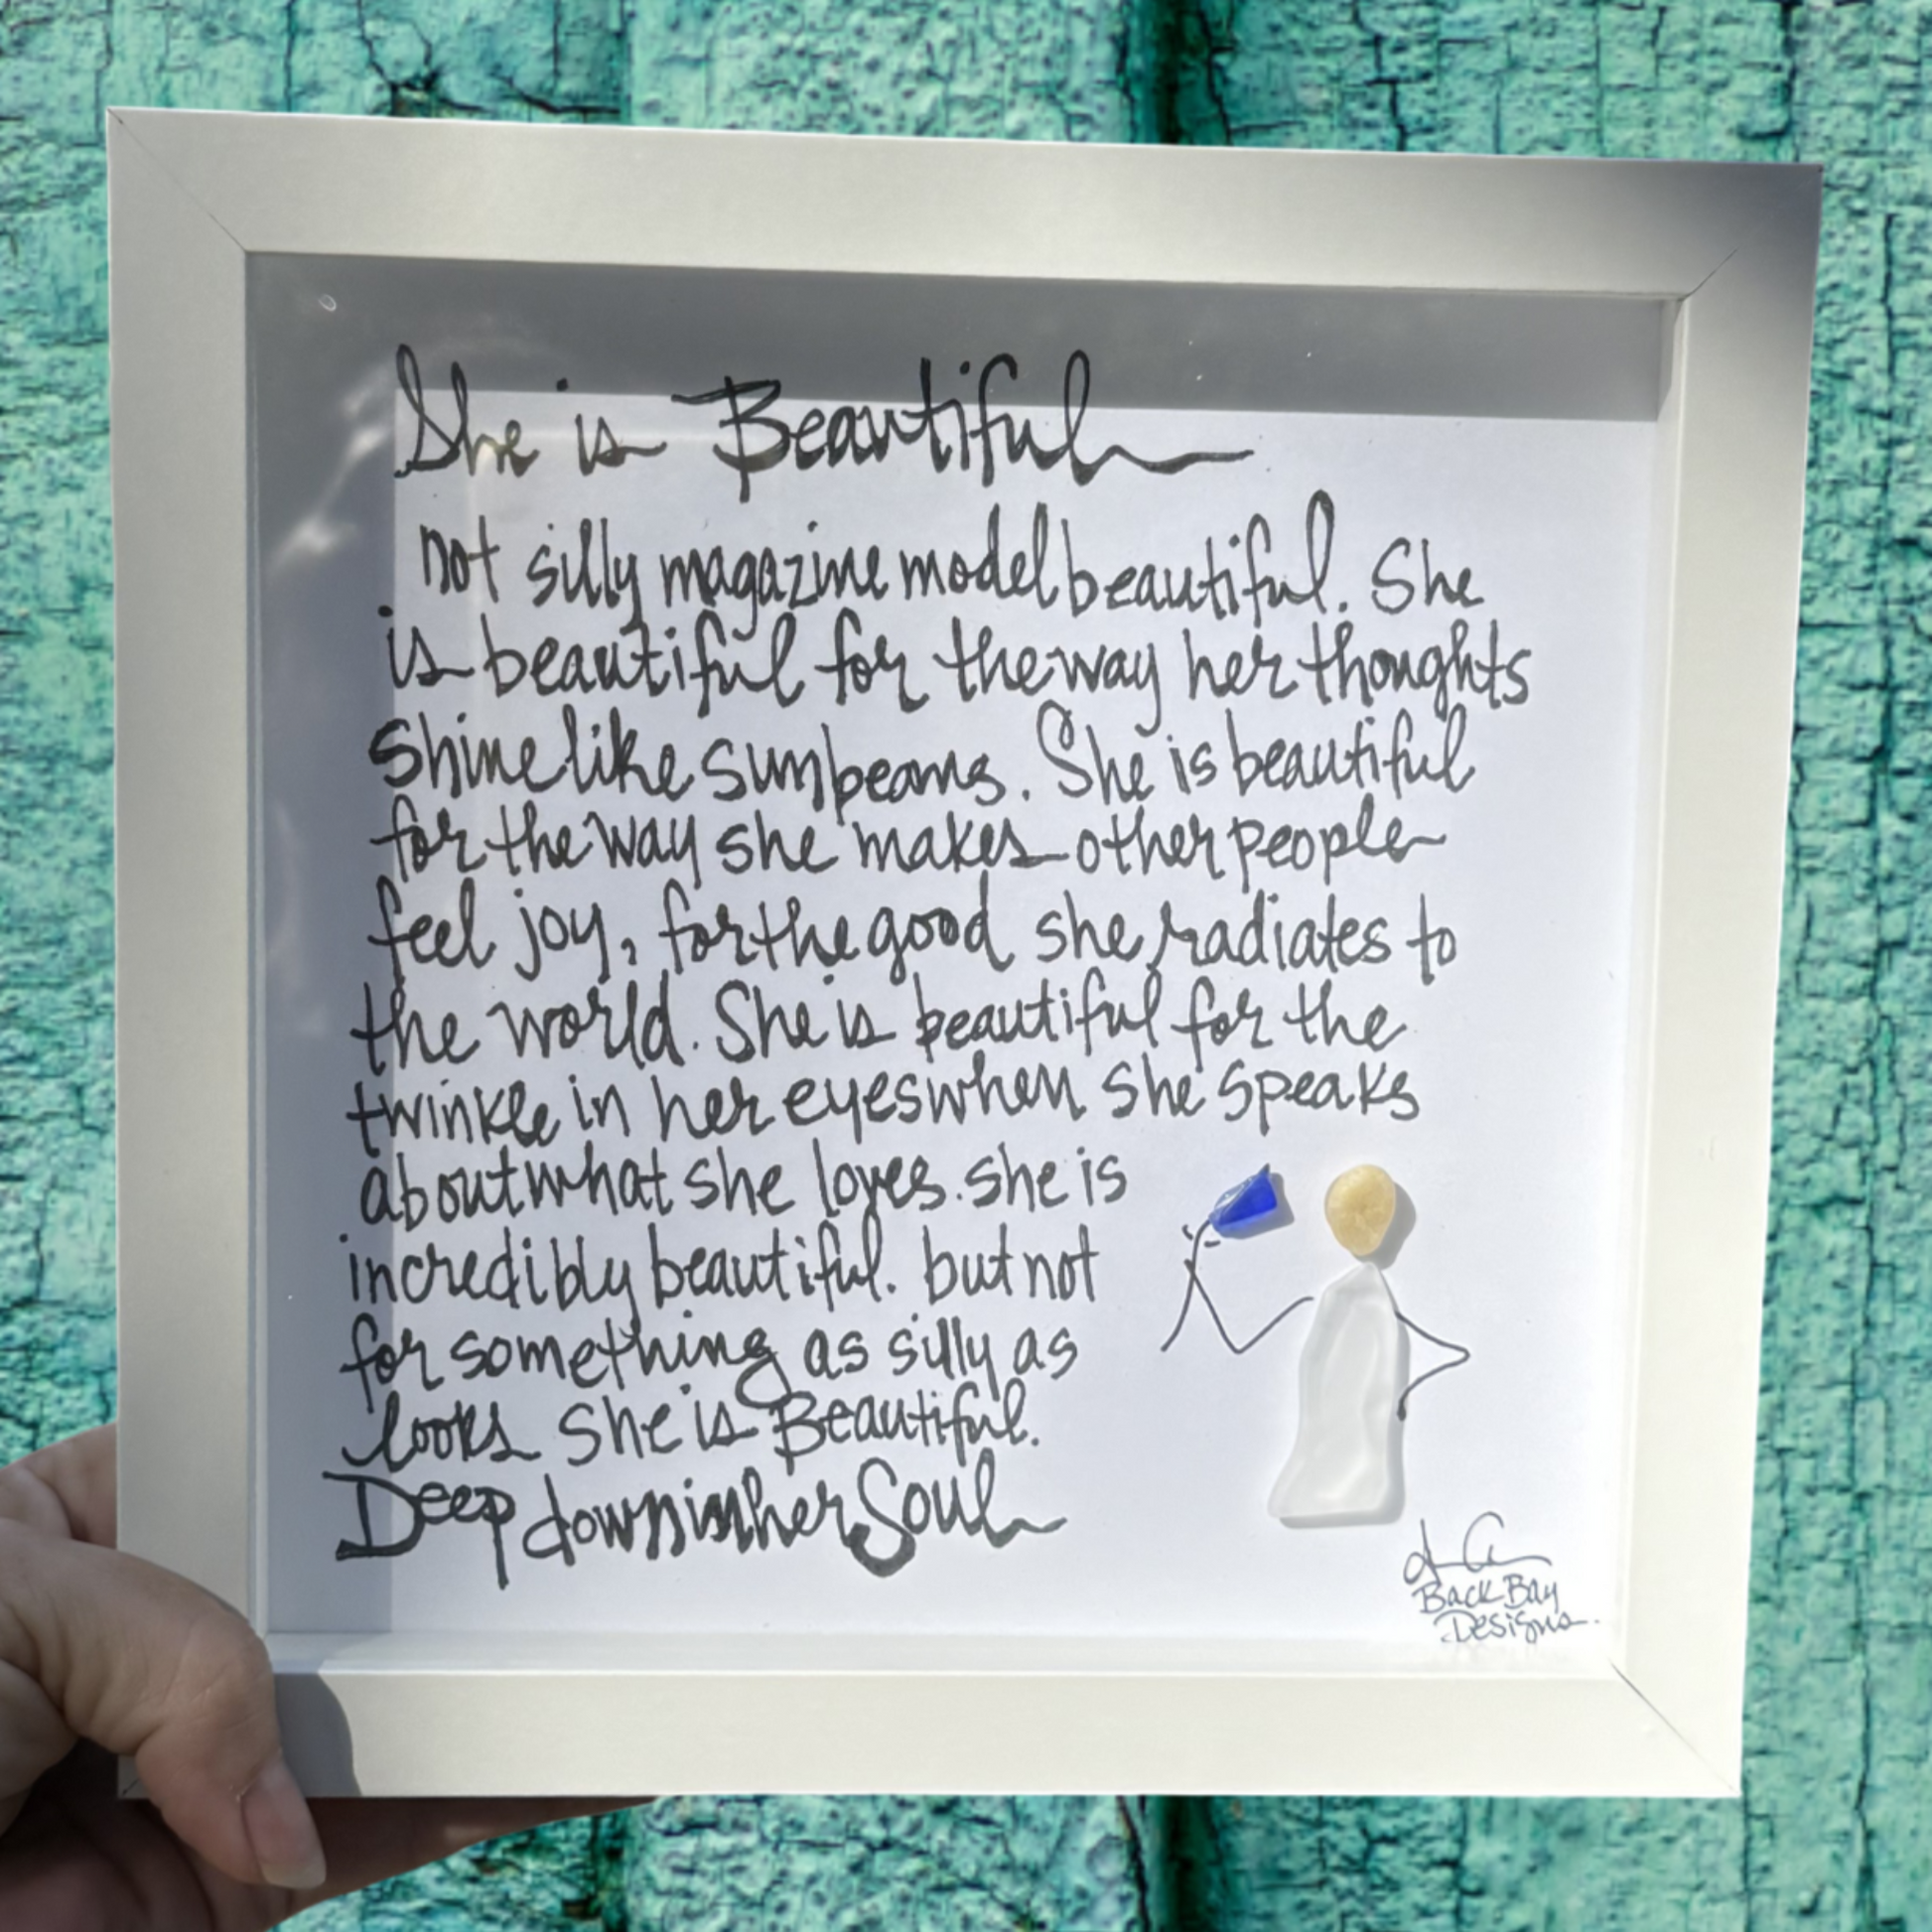 She is Beautiful
not silly magazine model beautiful. She
is beautiful for the way her thoughts
shine like sunbeams. She is beautiful
for the way she makes other people
feel joy, for the good she radiates to
the world. She is beautiful for the
twinkle in her eyes when she speaks
about what she loves. she is
incredibly beautiful. but not
for something as silly as
looks she is Beautiful.
Deep down in her Soul
Back Bay
Designs.